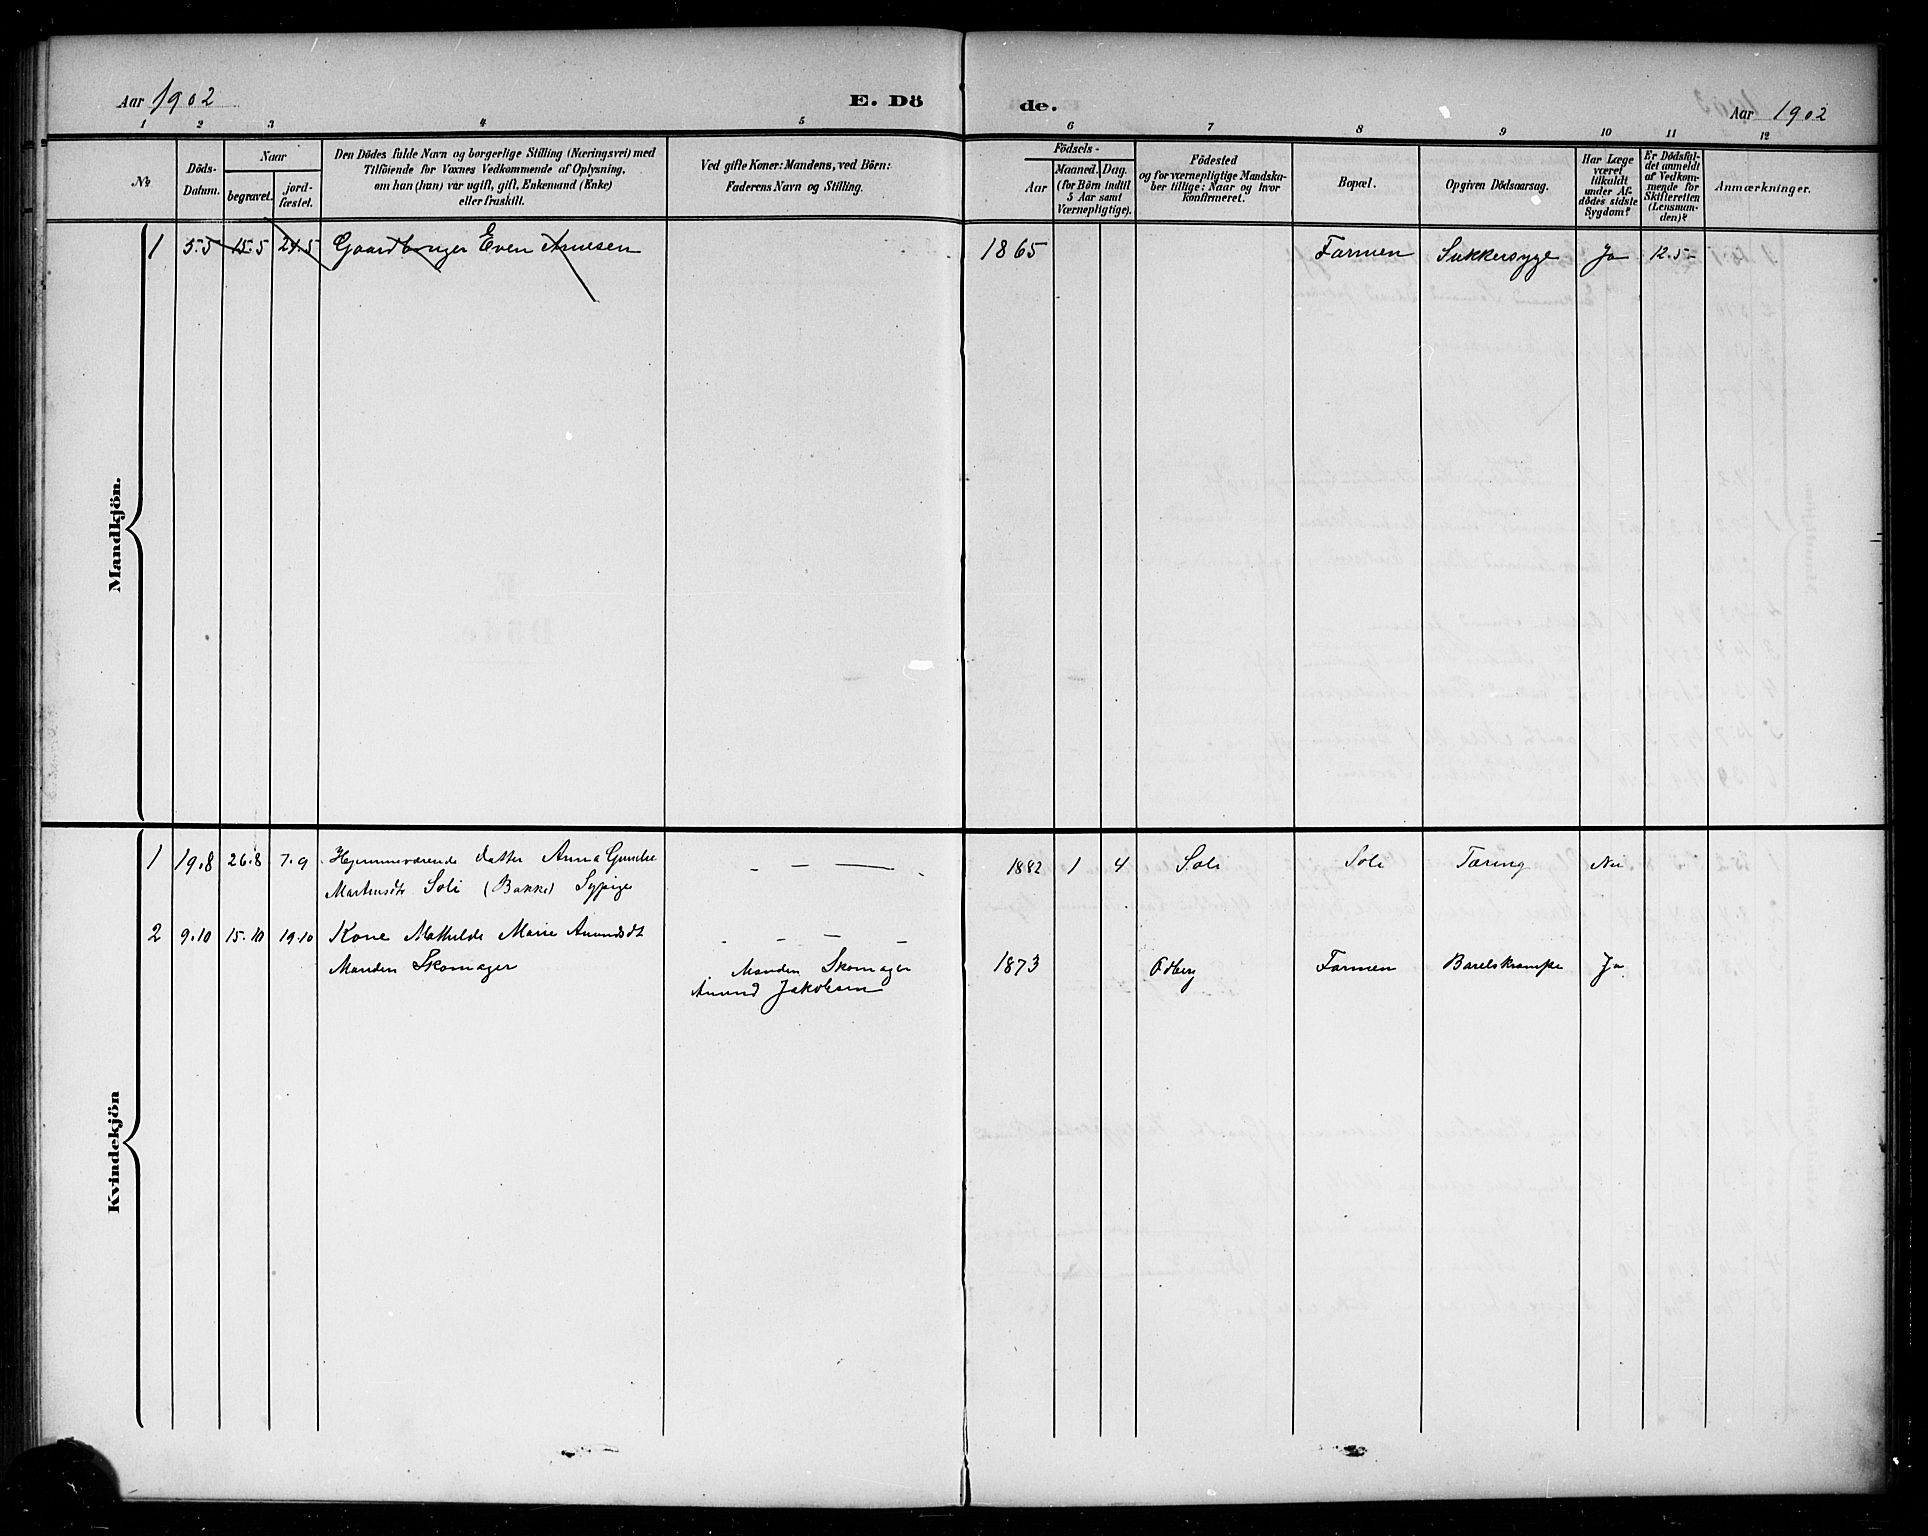 Aar 1902
E. Dö
de.
Aar 1902
1 2 3 4 5 6 7 8 9 10 11 12
No
Döds-
Datum.
Naar
begravet.
jord-
fæstet.
Den Dödes fulde Navn og borgerlige Stilling (Næringsvei) med
Tilföiende for Voxnes Vedkommende af Oplysning,
om han (hun) var ugift, gift, Enkemand (Enke)
eller fraskilt.
Ved gifte Koner: Mandens, ved Börn:
Faderens Navn og Stilling.
Födsels-
Aar
Maaned.
Dag.
(for Börn indtil
5 Aar samt
Værnepligtige).
Födested
og for værnepligtige Mandska-
ber tillige: Naar og hvor
konfirmeret.
Bopæl.
Opgiven Dödsaarsag.
Har Læge
været
tilkaldt
under Af-
dödes sidste
Sygdom?
Er Dödsfal-
det anmeldt
af Vedkom-
mende for
Skifteretten
(Lensman-
den)?
Anmærkninger.
Mandkjön.
1 5-5 15.5 24.5 Gaardbruger Even Arnesen 1865 Farmen Sukkersyge Ja 12.5-
Kvindekjön
1 19.8 26.8 7.9 Hjemmeværende datter Anna Gunda - - — 1882 1 4 Soli Soli Tæring Nei
Martinsdtr Soli (Bakke) Sypige
2 9.10 15.10 19.10 Kone Mathilde Marie Amundsdt - - - -
Manden Skomager Manden Skomager 1873 Odberg Farmen Barselskrampe Ja
Amund Jakobsen